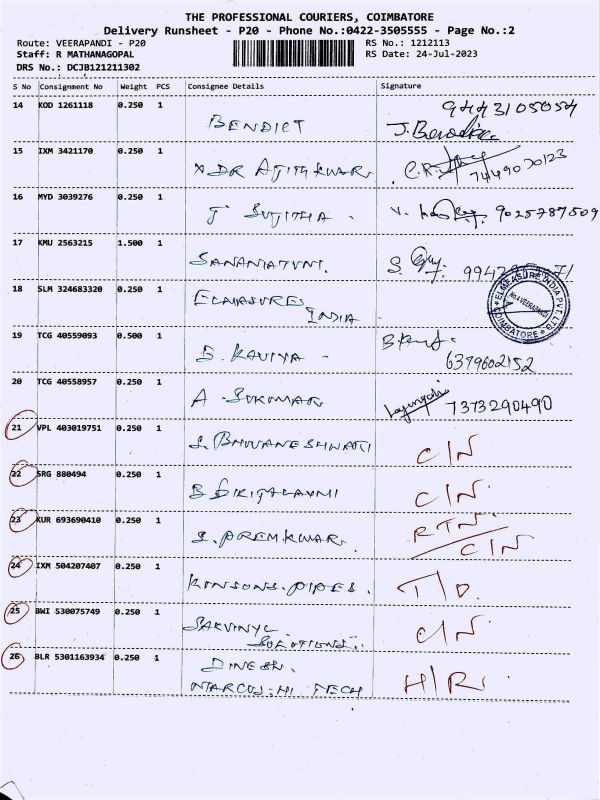 THE PROFESSIONAL COURIERS, COIMBATORE
Delivery Runsheet - P20 - Phone No.:0422-3505555 - Page No.:2
Route: VEERAPANDI - P20 RS No.: 1212113
Staff: R MATHANAGOPAL RS Date: 24-Jul-2023
DRS No.: DCJB121211302
S No Consignment No Weight PCS Consignee Details Signature
14 KOD 1261118 0.250 1 9443105054
BENDICT J. Benedict
15 IXM 3421170 0.250 1
DR AJITHKUMAR 7449030123
16 MYD 3039276 0.250 1
J SUJITHA . V. 9025787509
17 KMU 2563215 1.500 1
S.
18 SLM 324683320 0.250 1
ELMASURES
INDIA
ELMEASURE INDIA PVT. LTD.
VEERAPANDI
COIMBATORE
19 TCG 40559093 0.500 1
B. KAVIYA - 6379602152
20 TCG 40558957 0.250 1
A SUKUMAR 7373290490
21 VPL 403019751 0.250 1
S. BHUVANESHWARI C/N
22 SRG 880494 0.250 1
C/N
23 KUR 693690410 0.250 1 RTN.
S. PREMKUMAR. C/N
24 IXM 504207407 0.250 1
KINSONS. PIPES. T/D.
25 BWI 530075749 0.250 1
C/N
SOLUTIONS.
26 BLR 5301163934 0.250 1
DINESH. H/R.
TECH